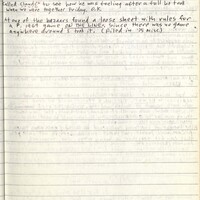 Called Cloudis to see how he was feeling after a fall he had
when we were together Friday. O.K.
At one of the bazaars found a loose sheet with rules for
a P. 1969 game ON THE LINKS. Since there was no game
anywhere around I took it. (Filed in '75 misc)